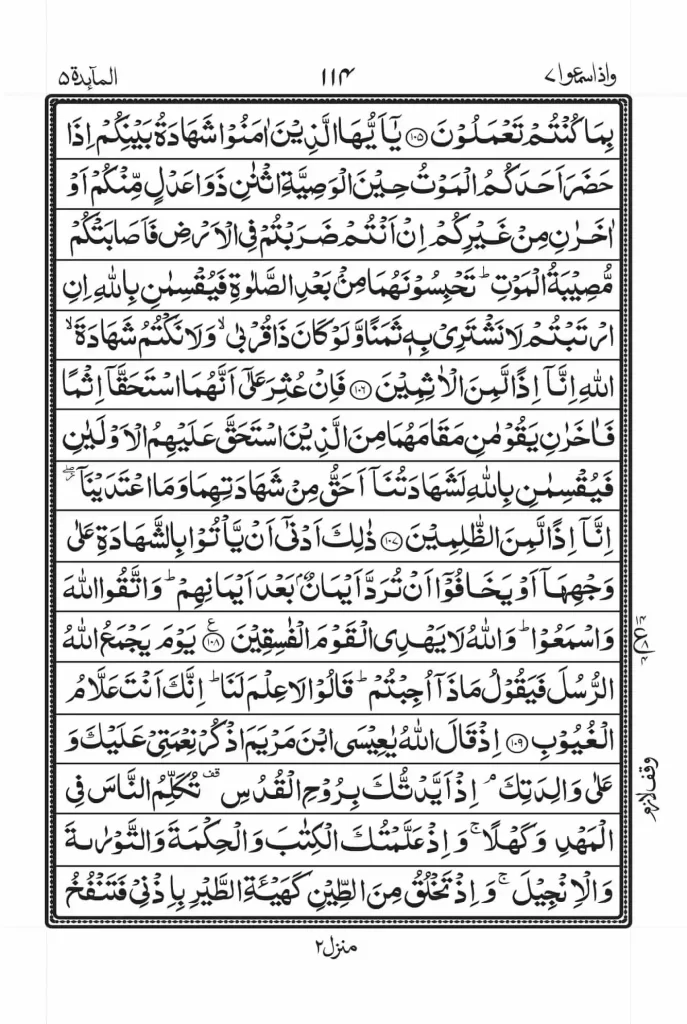 واذاسمعوا ٧ ١١٤ المآىِٕدة ٥
بِمَا كُنْتُمْ تَعْمَلُوْنَ ۝١٠٥ يٰۤاَيُّهَا الَّذِيْنَ اٰمَنُوْا شَهَادَةُ بَيْنِكُمْ اِذَا
حَضَرَ اَحَدَكُمُ الْمَوْتُ حِيْنَ الْوَصِيَّةِ اثْنٰنِ ذَوَا عَدْلٍ مِّنْكُمْ اَوْ
اٰخَرٰنِ مِنْ غَيْرِكُمْ اِنْ اَنْتُمْ ضَرَبْتُمْ فِي الْاَرْضِ فَاَصَابَتْكُمْ
مُّصِيْبَةُ الْمَوْتِ ؕ تَحْبِسُوْنَهُمَا مِنْۢ بَعْدِ الصَّلٰوةِ فَيُقْسِمٰنِ بِاللّٰهِ اِنِ
ارْتَبْتُمْ لَا نَشْتَرِيْ بِهٖ ثَمَنًا وَّلَوْ كَانَ ذَا قُرْبٰى ۙ وَلَا نَكْتُمُ شَهَادَةَ ۙ
اللّٰهِ اِنَّاۤ اِذًا لَّمِنَ الْاٰثِمِيْنَ ۝١٠٦ فَاِنْ عُثِرَ عَلٰۤى اَنَّهُمَا اسْتَحَقَّاۤ اِثْمًا
فَاٰخَرٰنِ يَقُوْمٰنِ مَقَامَهُمَا مِنَ الَّذِيْنَ اسْتَحَقَّ عَلَيْهِمُ الْاَوْلَيٰنِ
فَيُقْسِمٰنِ بِاللّٰهِ لَشَهَادَتُنَاۤ اَحَقُّ مِنْ شَهَادَتِهِمَا وَمَا اعْتَدَيْنَاۤ ۖ
اِنَّاۤ اِذًا لَّمِنَ الظّٰلِمِيْنَ ۝١٠٧ ذٰلِكَ اَدْنٰۤى اَنْ يَّاْتُوْا بِالشَّهَادَةِ عَلٰى
وَجْهِهَاۤ اَوْ يَخَافُوْۤا اَنْ تُرَدَّ اَيْمَانٌۢ بَعْدَ اَيْمَانِهِمْ ؕ وَاتَّقُوا اللّٰهَ
وَاسْمَعُوْا ؕ وَاللّٰهُ لَا يَهْدِي الْقَوْمَ الْفٰسِقِيْنَ ۝١٠٨ ع يَوْمَ يَجْمَعُ اللّٰهُ
الرُّسُلَ فَيَقُوْلُ مَاذَاۤ اُجِبْتُمْ ؕ قَالُوْا لَا عِلْمَ لَنَا ؕ اِنَّكَ اَنْتَ عَلَّامُ
الْغُيُوْبِ ۝١٠٩ اِذْ قَالَ اللّٰهُ يٰعِيْسَى ابْنَ مَرْيَمَ اذْكُرْ نِعْمَتِيْ عَلَيْكَ وَ
عَلٰى وَالِدَتِكَ ۘ اِذْ اَيَّدْتُّكَ بِرُوْحِ الْقُدُسِ قف تُكَلِّمُ النَّاسَ فِي
الْمَهْدِ وَكَهْلًا ۚ وَاِذْ عَلَّمْتُكَ الْكِتٰبَ وَالْحِكْمَةَ وَالتَّوْرٰىةَ
وَالْاِنْجِيْلَ ۚ وَاِذْ تَخْلُقُ مِنَ الطِّيْنِ كَهَيْـَٔةِ الطَّيْرِ بِاِذْنِيْ فَتَنْفُخُ
وقف لازم
منزل ٢